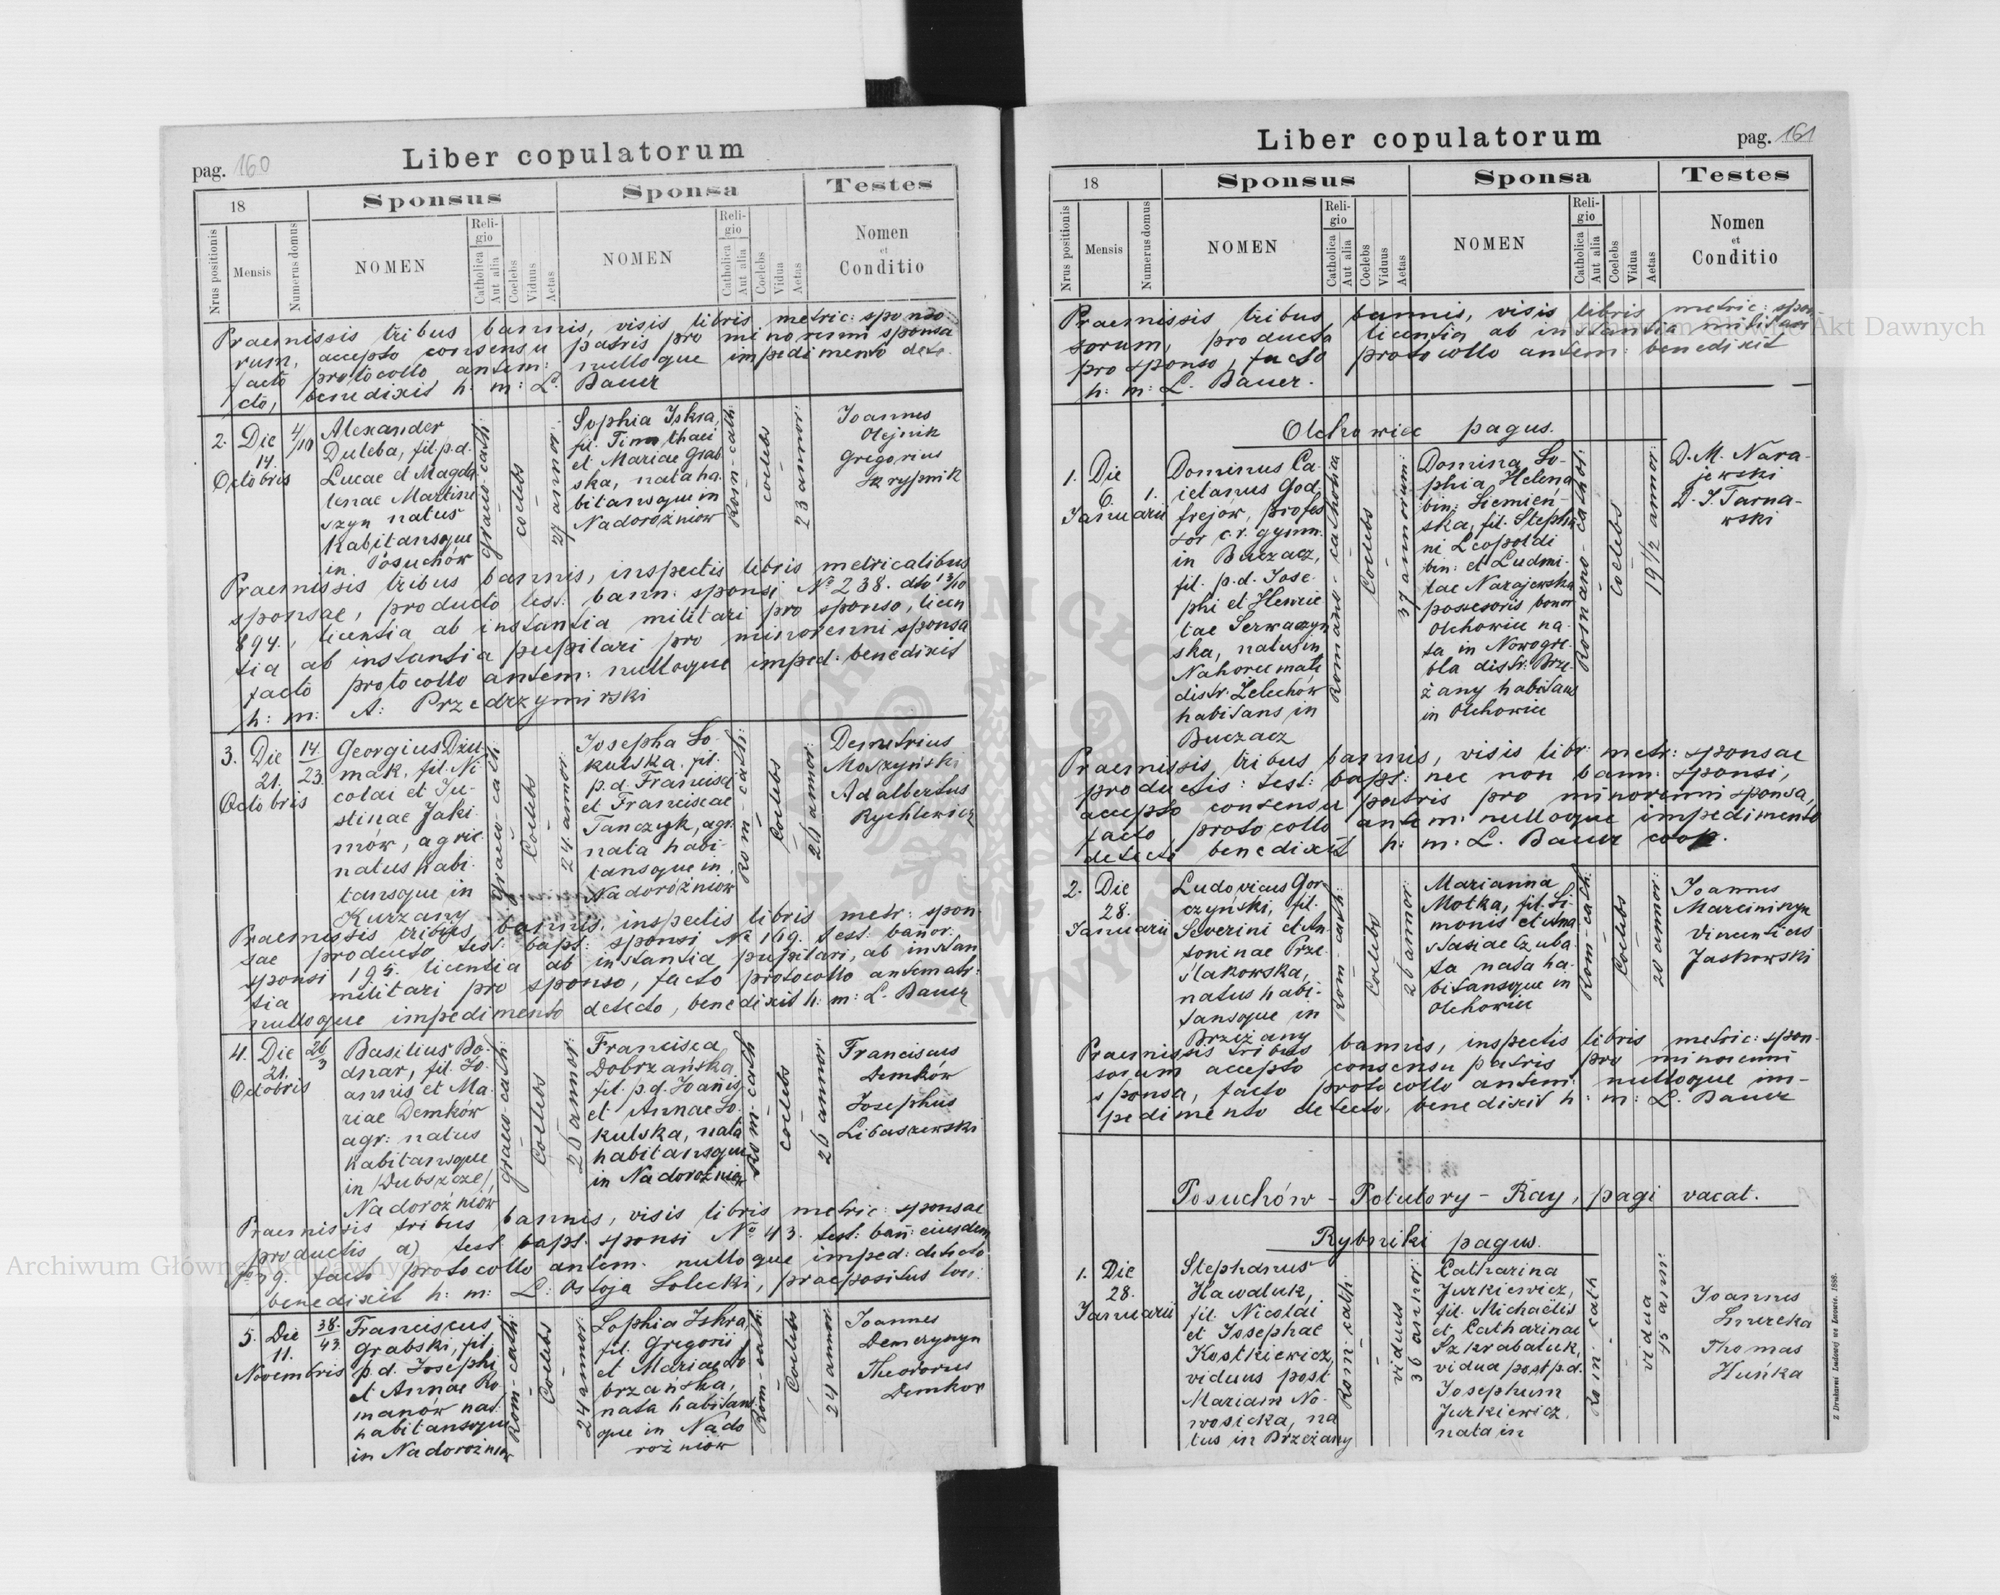 pag. 160
Liber copulatorum
18
Sponsus
Sponsa
Testes
Nrus positionis
Mensis
Numerus domus
NOMEN
Religio
Catholica
Aut alia
Coelebs
Viduus
Aetas
NOMEN
Religio
Catholica
Aut alia
Coelebs
Vidua
Aetas
Nomen
et
Conditio
Praemissis tribus bannis, visis libris metric: sponso
rum, accepto consensu patris pro minorenni sponsa
facto protocollo antem: nulloque impedimento dete
cto, benedixit h: m: L. Bauer
2. Die
14.
Octobris
4/10
Alexander
Duleba, fil. p.d.
Lucae et Magda
lenae Martine
szyn natus
habitansque
in Posuchów
graeco-cath:
coelebs
27 annor:
Sophia Iskra,
fil. Timothaei
et Mariae Grab
ska, nata ha
bitansque in
Nadorożniow
Rom-cath:
coelebs
23 annor:
Joannes
Olejnik
Gregorius
Skrypnik
Praemissis tribus bannis, inspectis libris metricalibus
sponsae, producto test: bann: sponsi No 238. dto 13/10
894., licentia ab instantia militari pro sponso, licen
tia ab instantia pupilari pro minorenni sponsa
facto protocollo antem: nulloque imped: benedixit
h: m: A: Przedrzymirski
3. Die
21.
Octobris
14.
23.
Georgius Dżu
mak, fil. Ni
colai et Ju
stinae Jaki
mów, agric.
natus habi
tansque in
Kurzany
graeco-cath:
Coelebs
24 annor:
Josepha So
kulska, fil.
p.d. Francisci
et Franciscae
Tanczyk, agr.
nata habi
tansque in
Nadorożniow
Rom-cath:
Coelebs
26 annor:
Demetrius
Moszyński
Adalbertus
Rychlewicz
Praemissis tribus bannis, inspectis libris metr: spon
sae producto test. bapt: sponsi No 169. test: banor.
sponsi 195. licentia ab instantia pupilari, ab instan
tia militari pro sponso, facto protocollo antematr:
nulloque impedimento detecto, benedixit h: m: L. Bauer
4. Die
21.
Octobris
26
3
Basilius Bo
dnar, fil. Jo
annis et Ma
riae Demków
agr: natus
habitansque
in /Dubszcze/,
Nadorożniów
graeco-cath:
Coelebs
26 annor:
Francisca
Dobrzańska
fil. p.d. Joanis
et Annae So
kulska, nata
habitansque
in Nadorożniow
Rom-cath
coelebs
26 annor:
Franciscus
Demków
Josephus
Libaszewski
Praemissis tribus bannis, visis libris metric: sponsae
productis a) test bapt: sponsi No 43. test: ban: eiusdem
No 79. facto protocollo antem. nulloque imped: detecto
benedixit h: m: L: Ostoja Solecki, praepositus loci.
5. Die
11.
Novembris
38.
43.
Franciscus
Grabski, fil.
p.d. Josephi
et Annae Ro
manów nat.
habitansque
in Nadorożniow
Rom-cath:
Coelebs
24 annor:
Sophia Iskra,
fil. Gregorii
et Mariae Do
brzańska,
nata habitans
que in Nado
rożniow
Rom-cath:
Coelebs
24 annor
Joannes
Demczyszyn
Theodorus
Demkow
Liber copulatorum
pag. 161
18
Sponsus
Sponsa
Testes
Nrus positionis
Mensis
Numerus domus
NOMEN
Religio
Catholica
Aut alia
Coelebs
Viduus
Aetas
NOMEN
Religio
Catholica
Aut alia
Coelebs
Vidua
Aetas
Nomen
et
Conditio
Praemissis tribus bannis, visis libris metric: spon
sorum, producta licentia ab instantia militari
pro sponso, facto protocollo antem: benedixit
h: m: L. Bauer.
Olchowiec pagus.
1. Die
6.
Januarii
1.
Dominus Ca
ietanus God
frejów, profes
sor c.r. gymn.
in Buczacz,
fil. p.d. Jose
phi et Henrie
tae Serwaczyn
ska, natus in
Nahorce małe
distr. Zelechów
habitans in
Buczacz
Romano-catholica
Coelebs
37 annorum:
Domina So-
phia Helena
bin: Siemień-
ska, fil. Stepha
ni Leopoldi
bin: et Ludmi-
lae Narajewska
possesoris bonor
Olchowiec na-
ta in Nowogre-
bla distr. Brze-
żany habitans
in Olchowiec
Romano-cathol:
Coelebs
19 1/2 annor:
D. M. Nara-
jewski
D. J. Tarna-
wski
Praemissis tribus bannis, visis libr: metr: sponsae
productis: test: bapt: nec non bann: sponsi,
accepto consensu patris pro minorenni sponsa,
facto protocollo antem: nulloque impedimento
detecti benedixit h: m: L. Bauer coop.
2. Die
28.
Januarii
Ludovicus Gor
czyński, fil.
Severini et An
toninae Prze
slakowska,
natus habi-
tansque in
Brzeżany
Rom-cath:
Coelebs
26 annor:
Marianna
Motka, fil. Si
monis et Ana
stasiae Czuba
ta nata ha
bitansque in
Olchowiec
Rom-cath:
Coelebs
20 annor:
Joannes
Marciniszyn
Vincentius
Jaskowski
Praemissis tribus bannis, inspectis libris metric: spon-
sorum accepto consensu patris pro minorenni
sponsa, facto protocollo antem: nulloque im-
pedimento detecto, benedixit h: m: L. Bauer
Posuchów - Potutory - Ray, pagi vacat.
Rybniki pagus.
1. Die
28.
Januarii
Stephanus
Hawaluk,
fil. Nicolai
et Josephae
Kostkiewicz,
viduus post
Mariam No-
wosicka, na
tus in Brzeżany
Rom: cath:
viduus
36 annor:
Catharina
Jurkiewicz,
fil. Michaëlis
et Catharinae
Szkrabaluk,
vidua post p.d.
Josephum
Jurkiewicz,
nata in
Rom: cath
vidua
45 ann:
Joannes
Smrecka
Thomas
Huńka
Z Drukarni Ludowej we Lwowie. 1888.
Archiwum Główne Akt Dawnych
Archiwum Główne Akt Dawnych
ARCHIWUM GŁÓWNE AKT DAWNYCH